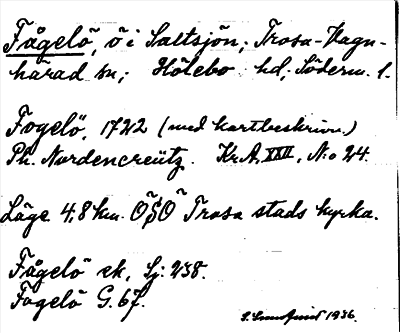 Fågelö, ö i Saltsjön; Trosa-Vagn-
härad sn; Hölebo hd; Söderm. l.
Fogelö, 1722 (med kartbeskrivn.)
Ph. Nordencreütz. Kr.A. XXII, No 24.
Läge 4,8 km. ÖSÖ Trosa stads kyrka.
Fågelö ek, Lj: 238.
Fogelö G. 67.
1936.